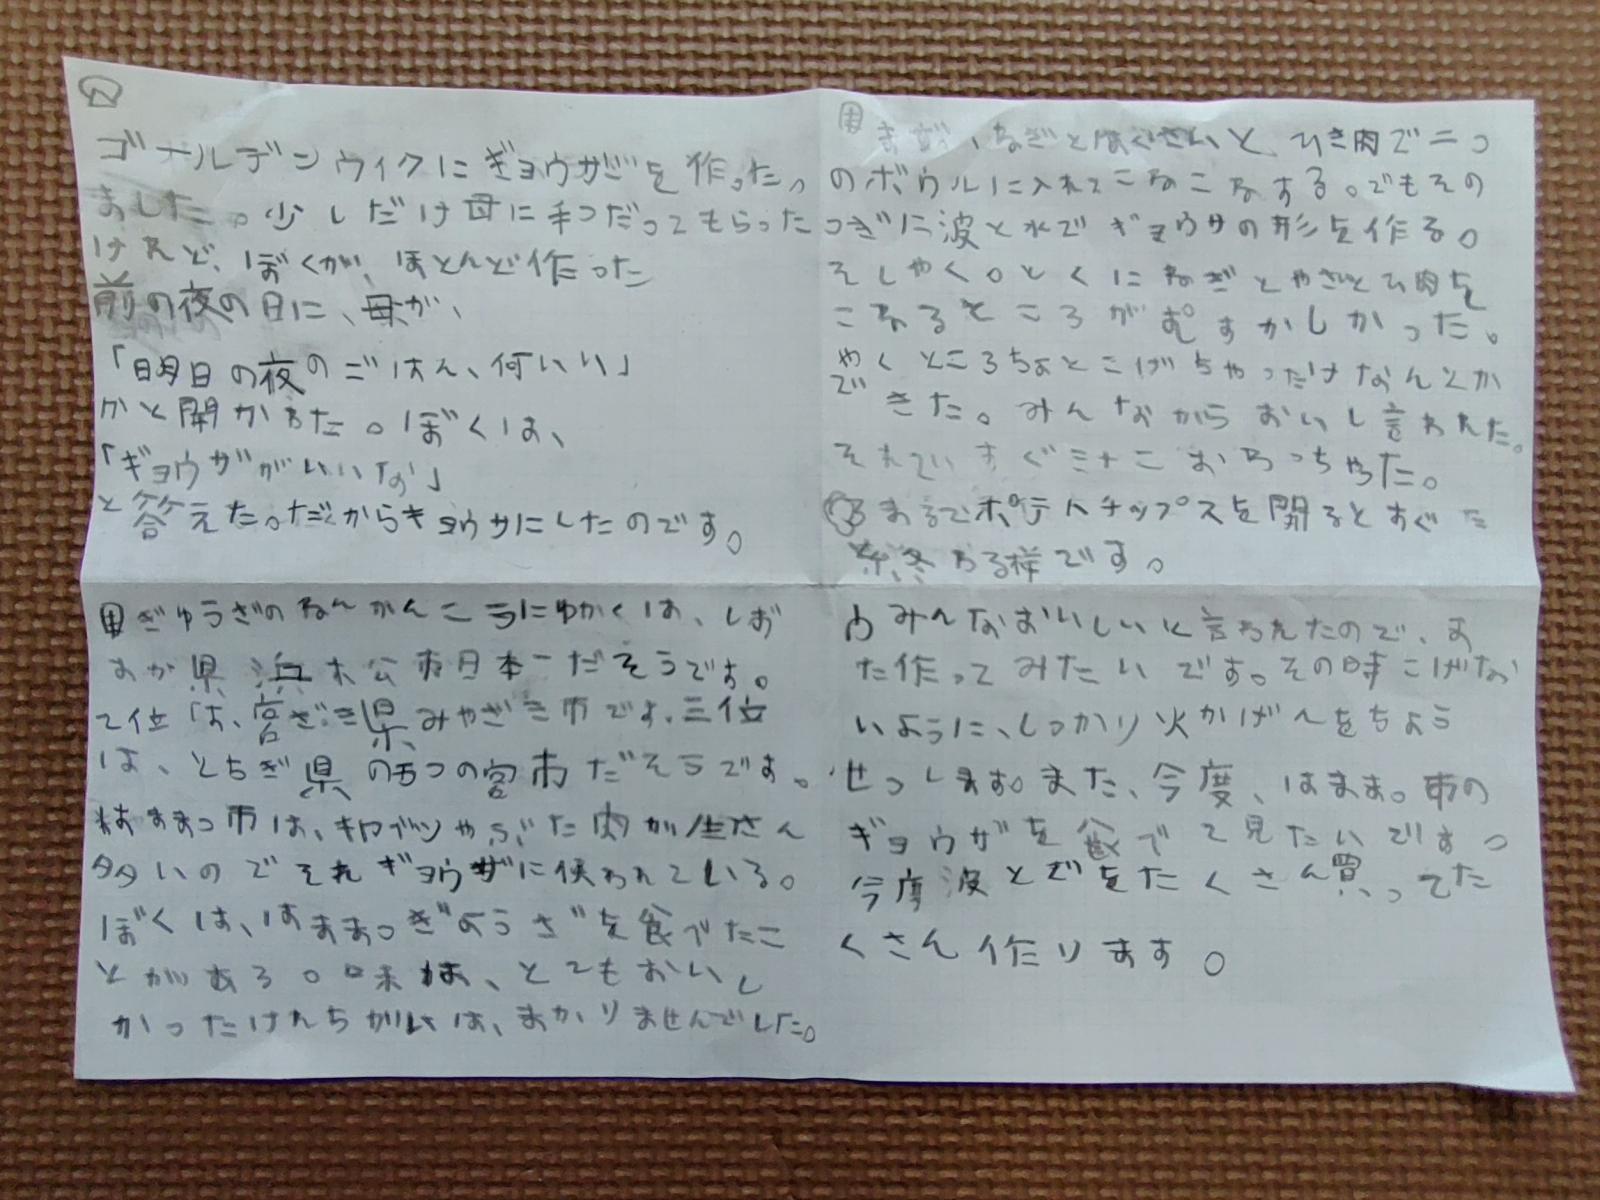 ゴールデンウィクにギョウザを作ったっ
ました。少しだけ母に手つだってもらった
けれど、ぼくが、ほとんど作たった
前の夜の日に、母が、
「明日の夜のごはん、何いい」
かと開かれた。ぼくは、
「ギョウザがいいな」
と答えた。だからギョウサにしたのです。
ぎゅうざのねんかんこうにゅかくは、しず
おか県浜木公市日本一だそうです。
2位は、宮ざき県みやざき市です。三位
は、とちぎ県のうつの宮市だそうです。
はままつ市は、キャベツやぶた肉が生さん
多いのでそれギョウザに使われている。
ぼくは、はままつぎょうざを食べたこ
とがある。味は、とてもおいし
かったけれちがいは、まかりませんでした。
まず、ねぎとはくさいと、ひき肉で二つ
のボウルに入れてこねこねする。でもその
つぎに波と水でギョウサの形を作る。
そしやく。とくにねぎとやさいとひ肉を
こねるところがむすかしかった。
やくところちょとこげちゃっだけなんとか
できた。みんなからおいし言われた。
それですぐミナこおわっちゃた。
まるでポテトチップスを開るとすぐた
終わる様です。
みんなおいしいと言われたので、ま
た作ってみたいです。その時こげな
いように、しっかり火かげんをちょう
せつします。また、今度、はままつ市の
ギョウザを食べて見たいですっ
今度波とでをたくさん買ってた
くさん作ります。